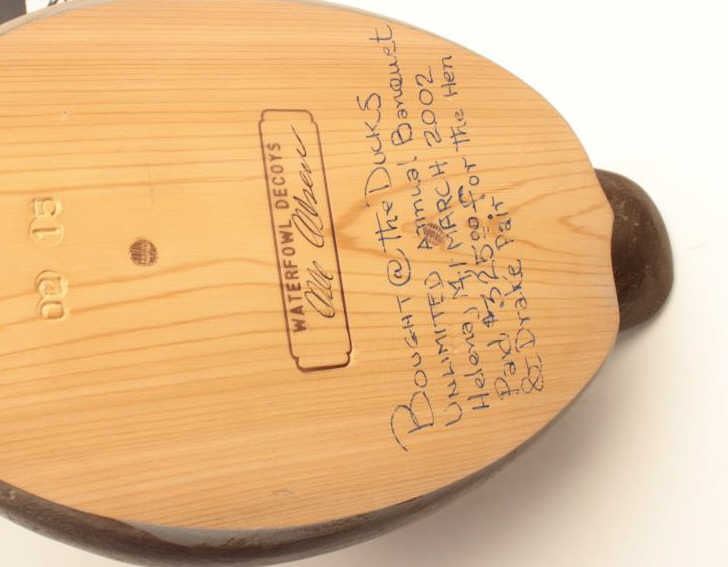 15
WATERFOWL DECOYS
BOUGHT @ the DUCKS
UNLIMITED Annual Banquet
Helena, MT MARCH 2002
Paid $325.00 for the Hen
& Drake Pair